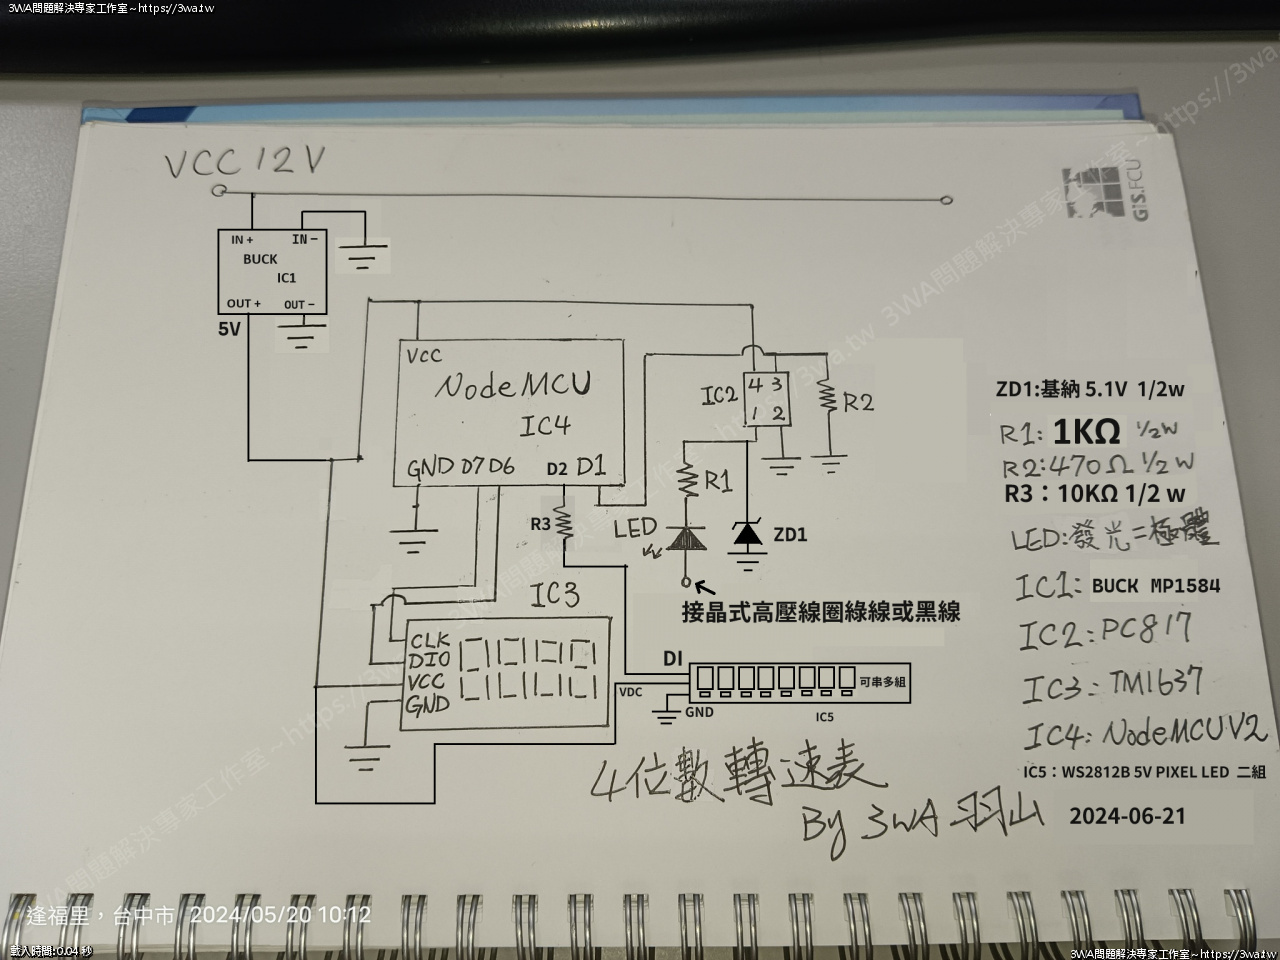 3WA問題解決專家工作室~https://3wa.tw
3WA問題解決專家工作室~https://3wa.tw
GIS.FCU
VCC 12V
IN + IN −
BUCK
IC1
OUT + OUT −
5V
VCC
NodeMCU
IC4
GND D7 D6 D2 D1
IC2 4 3
1 2
R2
R1
R3
LED
ZD1
接晶式高壓線圈綠線或黑線
IC3
CLK
DIO
VCC
GND
DI
VDC
GND
可串多組
IC5
ZD1:基納 5.1V 1/2w
R1: 1KΩ 1/2W
R2:470Ω 1/2W
R3:10KΩ 1/2 w
LED:發光二極體
IC1: BUCK MP1584
IC2: PC817
IC3: TM1637
IC4: NodeMCU V2
IC5:WS2812B 5V PIXEL LED 二組
4位數轉速表
By 3WA 羽山
2024-06-21
3WA問題解決專家工作室~https://3wa.tw
逢福里,台中市 2024/05/20 10:12
載入時間:0.04 秒
3WA問題解決專家工作室~https://3wa.tw